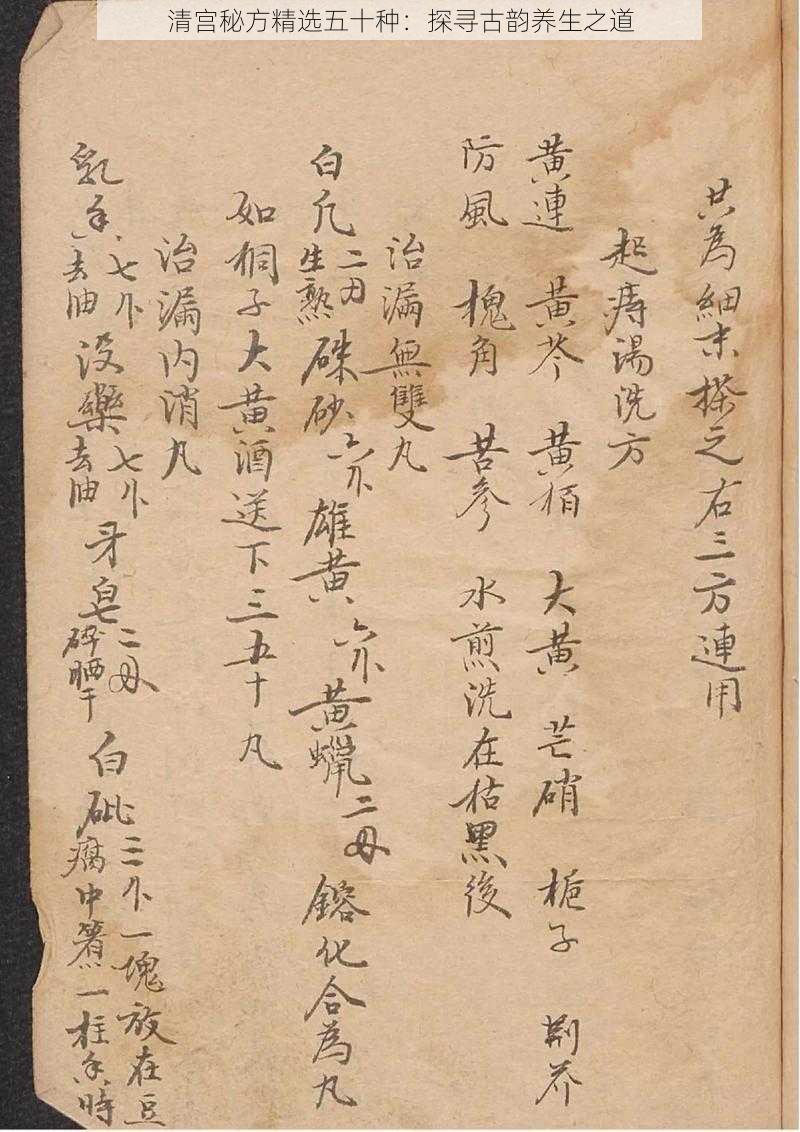 清宫秘方精选五十种：探寻古韵养生之道
共為細末搽之右三方連用
起痔湯洗方
黄連 黄芩 黄栢 大黄 芒硝 梔子 荆芥
防風 槐角 苦參 水煎洗在枯黑後
治漏無雙丸
白凡二刄生熟 硃砂六分 雄黄六分 黄蠟二刄 鎔化合為丸
如桐子大黄酒送下三五十丸
治漏内消丸
乳香七个去油 没藥七个去油 牙皂二刄碎晒干 白砒三个一塊放在豆腐中煮一柱香時